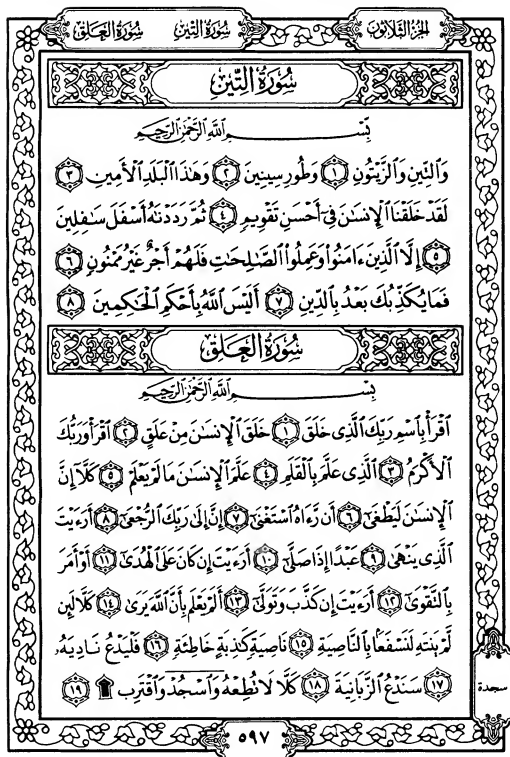 الجزء الثلاثون
سورة التين
سورة العلق
سُورَةُ التِّينِ
بِسْمِ اللَّهِ الرَّحْمَٰنِ الرَّحِيمِ
وَالتِّينِ وَالزَّيْتُونِ ١ وَطُورِ سِينِينَ ٢ وَهَٰذَا الْبَلَدِ الْأَمِينِ ٣
لَقَدْ خَلَقْنَا الْإِنسَٰنَ فِي أَحْسَنِ تَقْوِيمٍ ٤ ثُمَّ رَدَدْنَٰهُ أَسْفَلَ سَٰفِلِينَ
٥ إِلَّا الَّذِينَ ءَامَنُوا وَعَمِلُوا الصَّٰلِحَٰتِ فَلَهُمْ أَجْرٌ غَيْرُ مَمْنُونٍ ٦
فَمَا يُكَذِّبُكَ بَعْدُ بِالدِّينِ ٧ أَلَيْسَ اللَّهُ بِأَحْكَمِ الْحَٰكِمِينَ ٨
سُورَةُ الْعَلَقِ
بِسْمِ اللَّهِ الرَّحْمَٰنِ الرَّحِيمِ
اقْرَأْ بِاسْمِ رَبِّكَ الَّذِي خَلَقَ ١ خَلَقَ الْإِنسَٰنَ مِنْ عَلَقٍ ٢ اقْرَأْ وَرَبُّكَ
الْأَكْرَمُ ٣ الَّذِي عَلَّمَ بِالْقَلَمِ ٤ عَلَّمَ الْإِنسَٰنَ مَا لَمْ يَعْلَمْ ٥ كَلَّا إِنَّ
الْإِنسَٰنَ لَيَطْغَىٰ ٦ أَن رَّءَاهُ اسْتَغْنَىٰ ٧ إِنَّ إِلَىٰ رَبِّكَ الرُّجْعَىٰ ٨ أَرَءَيْتَ
الَّذِي يَنْهَىٰ ٩ عَبْدًا إِذَا صَلَّىٰ ١٠ أَرَءَيْتَ إِن كَانَ عَلَى الْهُدَىٰ ١١ أَوْ أَمَرَ
بِالتَّقْوَىٰ ١٢ أَرَءَيْتَ إِن كَذَّبَ وَتَوَلَّىٰ ١٣ أَلَمْ يَعْلَم بِأَنَّ اللَّهَ يَرَىٰ ١٤ كَلَّا لَئِن
لَّمْ يَنتَهِ لَنَسْفَعًا بِالنَّاصِيَةِ ١٥ نَاصِيَةٍ كَٰذِبَةٍ خَاطِئَةٍ ١٦ فَلْيَدْعُ نَادِيَهُۥ
١٧ سَنَدْعُ الزَّبَانِيَةَ ١٨ كَلَّا لَا تُطِعْهُ وَاسْجُدْ وَاقْتَرِب ۩ ١٩
سجدة
٥٩٧